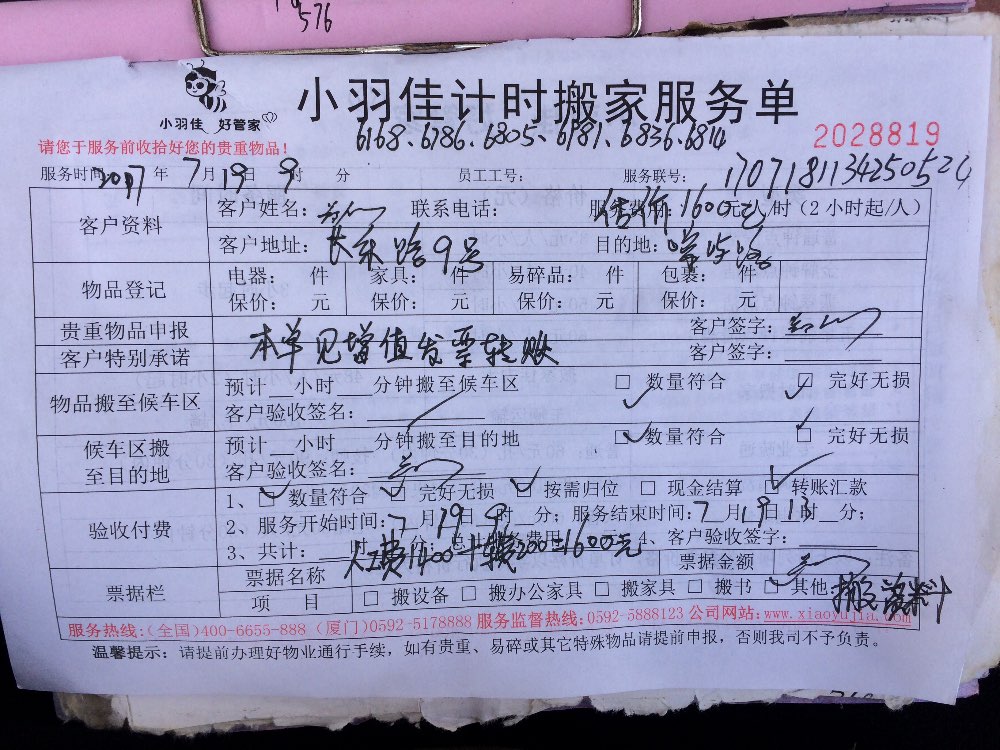 576
小羽佳计时搬家服务单
小羽佳 好管家
6168、6786、6805、6981、6836、6814
2028819
请您于服务前收拾好您的贵重物品！
服务时间 2017 年 7 月 19 日 9 时 分 员工工号： 服务联号： 170718113425052
客户资料 客户姓名： 联系电话： 服务费用： 估价1600元 元/时（2小时起/人）
客户地址：长乐路9号 目的地：
物品登记 电器： 件 家具： 件 易碎品： 件 包裹： 件
保价： 元 保价： 元 保价： 元 保价： 元
贵重物品申报 客户签字：
本单见增值发票转账
客户特别承诺 客户签字：
物品搬至候车区 预计 小时 分钟搬至候车区 □ 数量符合 □ 完好无损
客户验收签名：
候车区搬至目的地 预计 小时 分钟搬至目的地 □ 数量符合 □ 完好无损
客户验收签名：
验收付费 1、□ 数量符合 □ 完好无损 □ 按需归位 □ 现金结算 □ 转账汇款
2、服务开始时间：7 月 19 日 9 时 分；服务结束时间：7 月 19 日 13 时 分；
3、共计： 时 分；总 费用 4、客户签字：
人工费1400+ 200=1600元
票据栏 票据名称 票据金额
项 目 □ 搬设备 □ 搬办公家具 □ 搬家具 □ 搬书 □ 其他 搬 料
服务热线：(全国)400-6655-888 (厦门)0592-5178888 服务监督热线：0592-5888123 公司网站：www.xiaoyujia.com
温馨提示：请提前办理好物业通行手续，如有贵重、易碎或其它特殊物品请提前申报，否则我司不予负责。